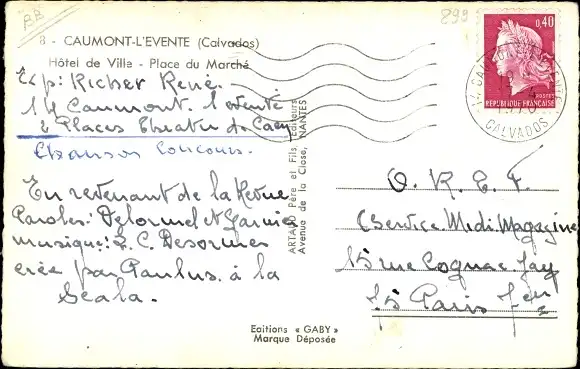 BB
899
8 - CAUMONT-L'EVENTE (Calvados)
Hôtel de Ville - Place du Marché
Exp: Richer René.
14 Caumont. l'eventé
2 Places Theatre de Caen
Chanson Concours.
En revenant de la Revue
Paroles: Delormel & Garnier
musique: L. C. Desormes
crée par Paulus. à la
Scala.
ARTAUD Père et Fils, Editeurs
Avenue de la Close, NANTES
Editions « GABY »
Marque Déposée
0,40
POSTES
REPUBLIQUE FRANÇAISE
CALVADOS
O. R. E. F.
(Service Midi Magazine
15 rue Cognac Jay
75 Paris 7eme